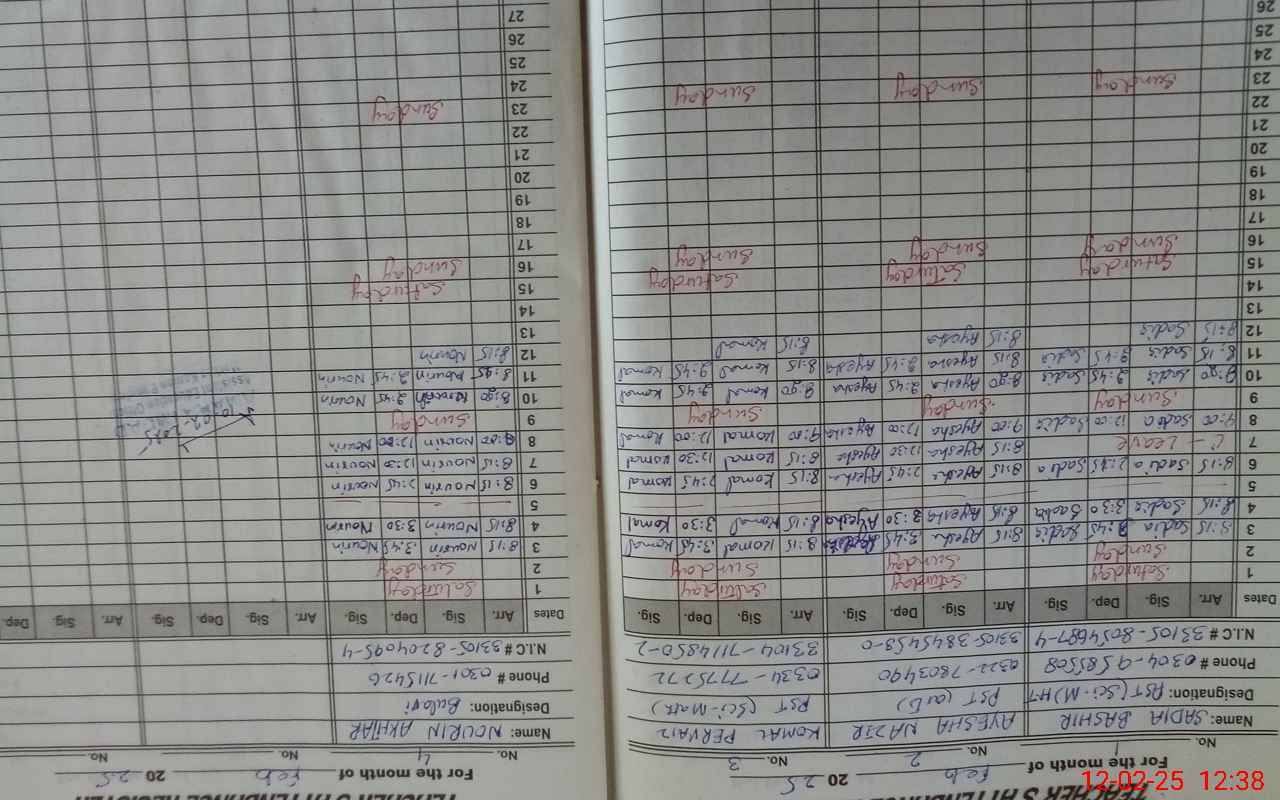 TEACHER'S ATTENDANCE
For the month of Feb 2025
No. 1 No. 2 No. 3
Name: SADIA BASHIR AYESHA NAZIR KOMAL PERVAIZ
Designation: PST (Sci-M) H7 PST (arts) PST (Sci-Math)
Phone # 0304-9585508 0322-7803490 0334-7775272
N.I.C # 33105-8054687-4 33105-3845453-0 33104-7114850-2
Dates Arr. Sig. Dep. Sig. Arr. Sig. Dep. Sig. Arr. Sig. Dep. Sig.
1 Saturday Saturday Saturday
2 Sunday Sunday Sunday
3 8:15 Sadia 3:45 Sadia 8:15 Ayesha 3:45 8:15 Komal 3:45 Komal
4 8:15 Sadia 3:30 Sadia 8:15 Ayesha 3:30 Ayesha 8:15 Komal 3:30 Komal
5
6 8:15 Sadia 2:45 Sadia 8:15 Ayesha 2:45 Ayesha 8:15 Komal 2:45 Komal
7 C - Leave 8:15 Ayesha 12:30 Ayesha 8:15 Komal 12:30 Komal
8 9:00 Sadia 12:00 Sadia 9:00 Ayesha 12:00 Ayesha 9:00 Komal 12:00 Komal
9 Sunday Sunday Sunday
10 8:90 Sadia 2:45 Sadia 8:90 Ayesha 2:45 Ayesha 8:90 Komal 2:45 Komal
11 8:15 Sadia 2:45 Sadia 8:15 Ayesha 2:45 Ayesha 8:15 Komal 2:45 Komal
12 8:15 Sadia 8:15 Ayesha 8:15 Komal
13
14
15 Saturday Saturday Saturday
16 Sunday Sunday Sunday
17
18
19
20
21
22
23 Sunday Sunday Sunday
24
25
26
TEACHER'S ATTENDANCE REGISTER
For the month of Feb 2025
No. 4 No. No.
Name: NOURIN AKHTAR
Designation: Bulavi
Phone # 0301-7115426
N.I.C # 33105-8204095-4
Dates Arr. Sig. Dep. Sig. Arr. Sig. Dep. Sig. Arr. Sig. Dep.
1 Saturday
2 Sunday
3 8:15 Nourin 3:45 Nourin
4 8:15 Nourin 3:30 Nourin
5
6 8:15 Nourin 2:45 Nourin
7 8:15 Nourin 12:30 Nourin
8 9:00 Nourin 12:00 Nourin
9 Sunday
10 8:90 Nourin 2:45 Nourin
11 8:15 Nourin 2:45 Nourin
12 8:15 Nourin
13
14
15 Saturday
16 Sunday
17
18
19
20
21
22
23 Sunday
24
25
26
27
12-02-25 12:38